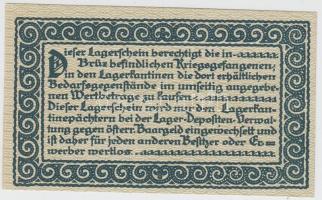 Dieser Lagerschein berechtigt die in
Brüx befindlichen Kriegsgefangenen,
in den Lagerkantinen die dort erhältlichen
Bedarfsgegenstände im umseitig angegebe-
nen Wertbetrage zu kaufen.
Dieser Lagerschein wird nur den Lagerkan-
tinepächtern bei der Lager-Depositen-Verwal-
tung gegen österr. Baargeld eingewechselt und
ist daher für jeden anderen Besitzer oder Er-
werber wertlos.